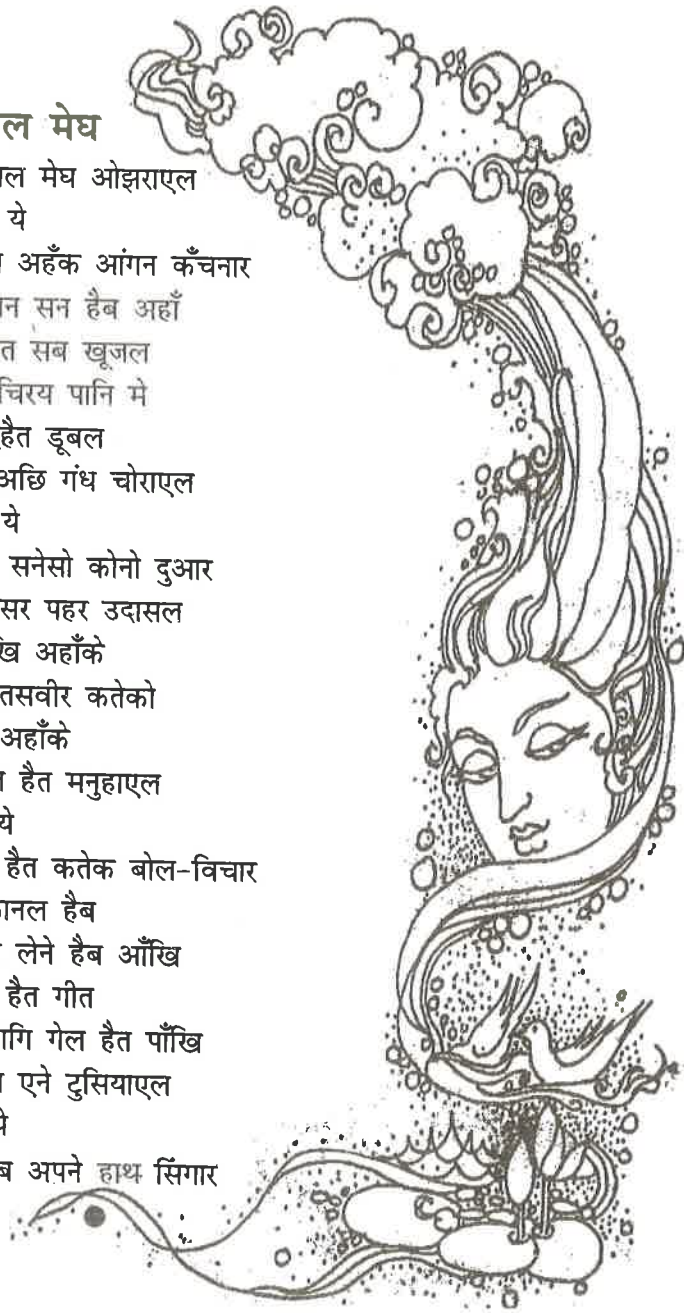 मेघ
मेघ ओझराएल
ये
अहँक आंगन कँचनार
सन हैब अहाँ
सब खूजल
चिरय पानि मे
डूबल
अछि गंध चोराएल
ये
सनेसो कोनो दुआर
पहर उदासल
अहाँके
तसवीर कतेको
अहाँके
हैत मनुहाएल
ये
हैत कतेक बोल-विचार
हैब
लेने हैब आँखि
हैत गीत
गेल हैत पाँखि
एने टुसियाएल
अपने हाथ सिंगार